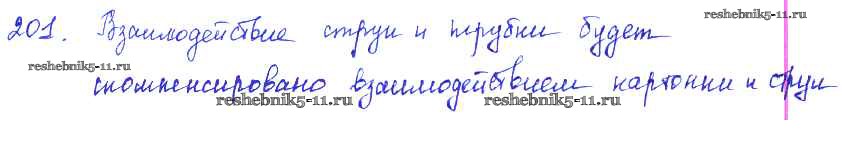 201. Взаимодействие струи и трубки будет
скомпенсировано взаимодействием картонки и струи
reshebnik5-11.ru
reshebnik5-11.ru
reshebnik5-11.ru
reshebnik5-11.ru